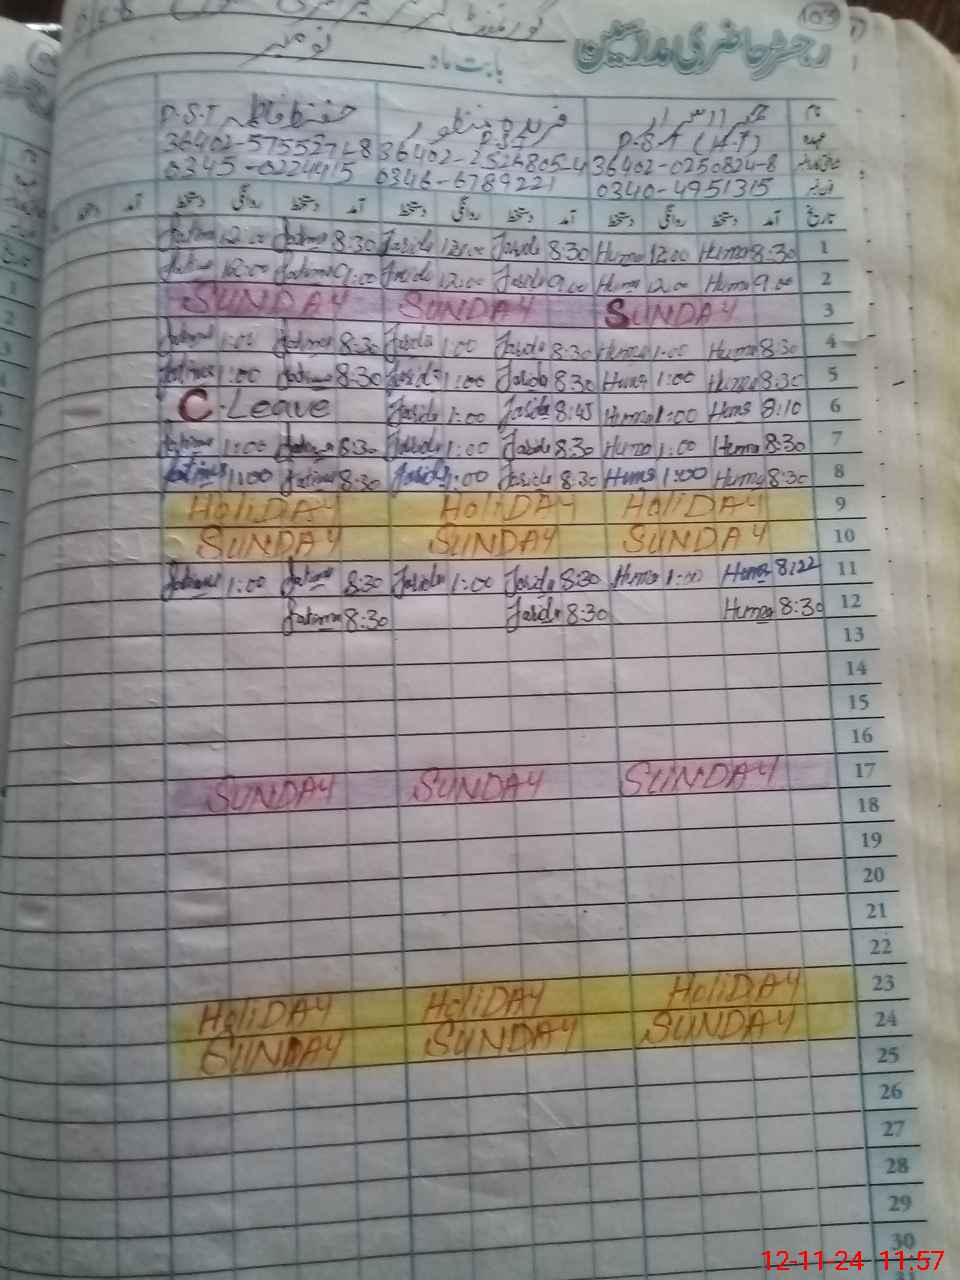 103
رجسٹر حاضری مدارسین
بابت ماہ نومبر
نام
P.S.T فریدہ منظور
عہدہ P.S.T (H.T) P.S.T
36402-0250824-8 36402-2526805-4 36402-5755271-8
0340-4951315 0346-6789221 0345-0224415
تاریخ آمد دستخط روانگی دستخط آمد دستخط روانگی دستخط آمد دستخط روانگی دستخط آمد
1 8:30 Huma 12:00 Huma 8:30 Farida 12:00 Farida 8:30 Fatima 12:00 Fatima
2 9:00 Huma 12:00 Huma 9:00 Farida 12:00 Farida 9:00 Fatima 12:00 Fatima
3 SUNDAY SUNDAY SUNDAY
4 8:30 Huma 1:00 Huma 8:30 Farida 1:00 Farida 8:30 Fatima 1:00 Fatima
5 8:30 Huma 1:00 Huma 8:30 Farida 1:00 Farida 8:30 Fatima 1:00 Fatima
6 8:10 Huma 1:00 Huma 8:45 Farida 1:00 Farida C.Leave
7 8:30 Huma 1:00 Huma 8:30 Farida 1:00 Farida 8:30 Fatima 1:00 Fatima
8 8:30 Huma 1:00 Huma 8:30 Farida 1:00 Farida 8:30 Fatima 1:00 Fatima
9 HoliDAY HoliDAY HoliDAY
10 SUNDAY SUNDAY SUNDAY
11 8:22 Huma 1:00 Huma 8:30 Farida 1:00 Farida 8:30 Fatima 1:00 Fatima
12 8:30 Huma 8:30 Farida 8:30 Fatima
13
14
15
16
17 SUNDAY SUNDAY SUNDAY
18
19
20
21
22
23 HoliDAY HoliDAY HoliDAY
24 SUNDAY SUNDAY SUNDAY
25
26
27
28
29
30
12-11-24 11:57